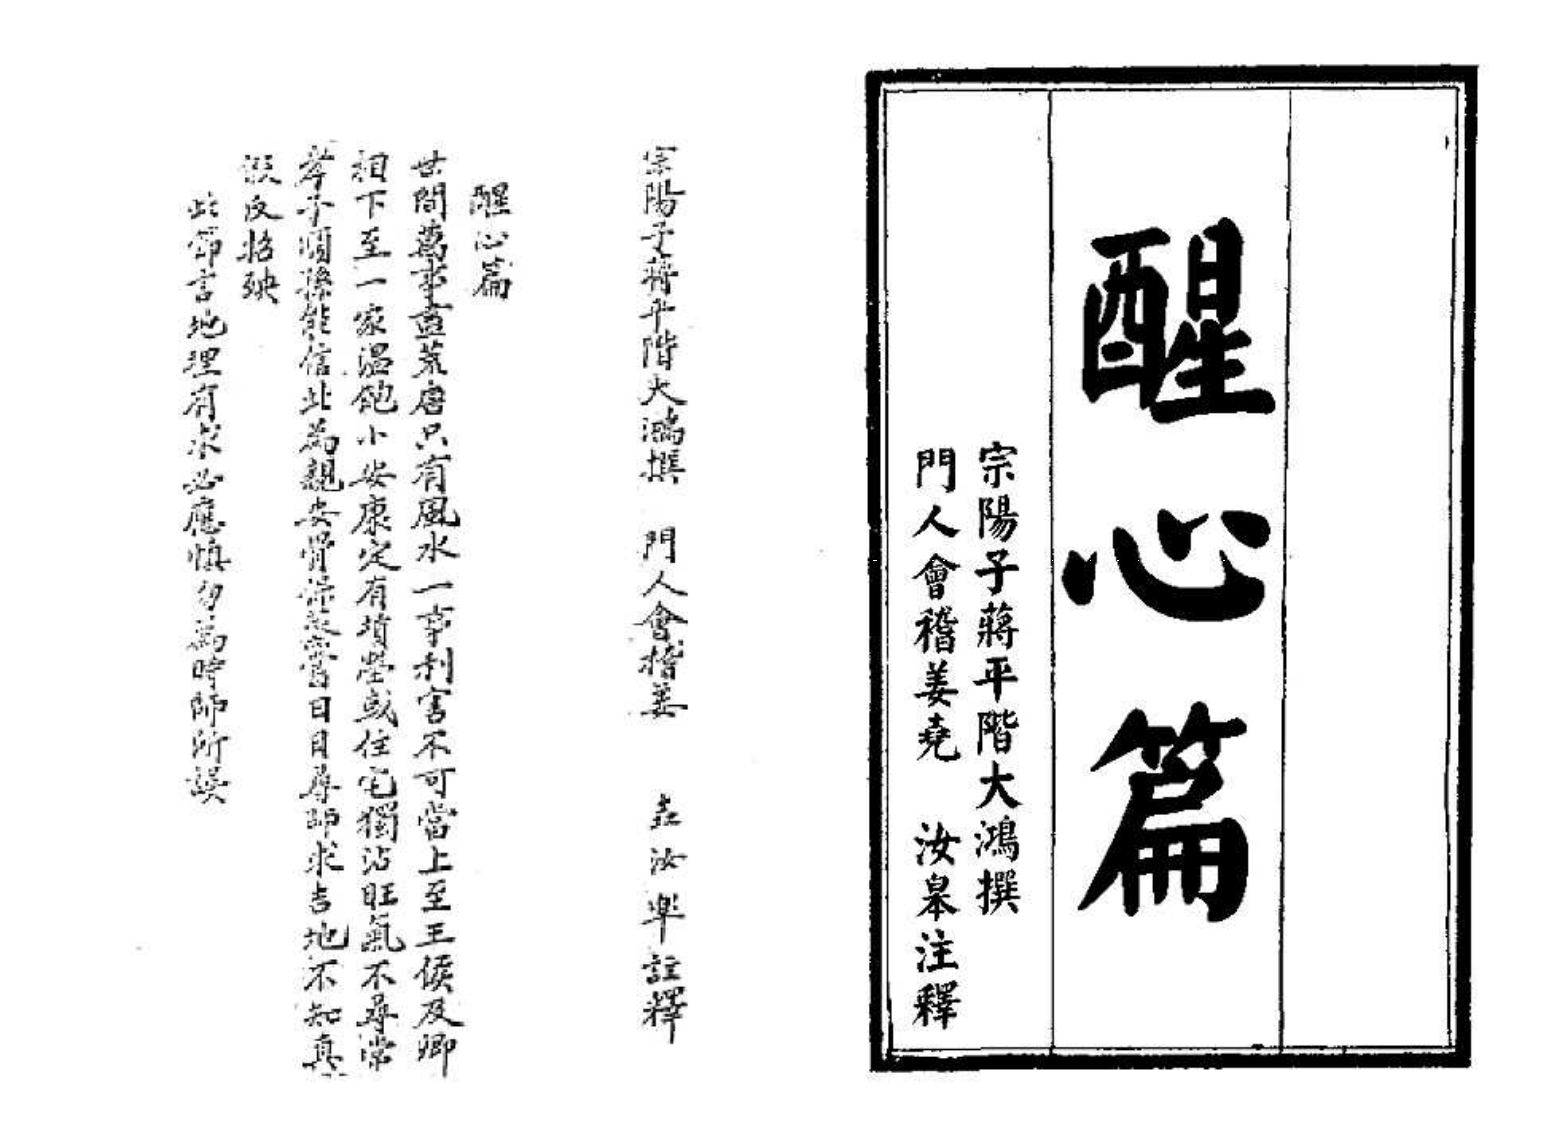 醒心篇
宗陽子蔣平階大鴻撰
門人會稽姜堯 汝皋注釋
宗陽子蔣平階大鴻撰 門人會稽姜 垚汝皋註釋
醒心篇
世間萬事盡荒唐只有風水一事利害不可當上至王侯及卿
相下至一家溫飽小安康定有墳塋或住宅獨沾旺氣不尋常
孝子順孫能信此為親安骨當日日尋師求吉地不知真
誤反招殃
此節言地理有求必應慎勿為時師所誤